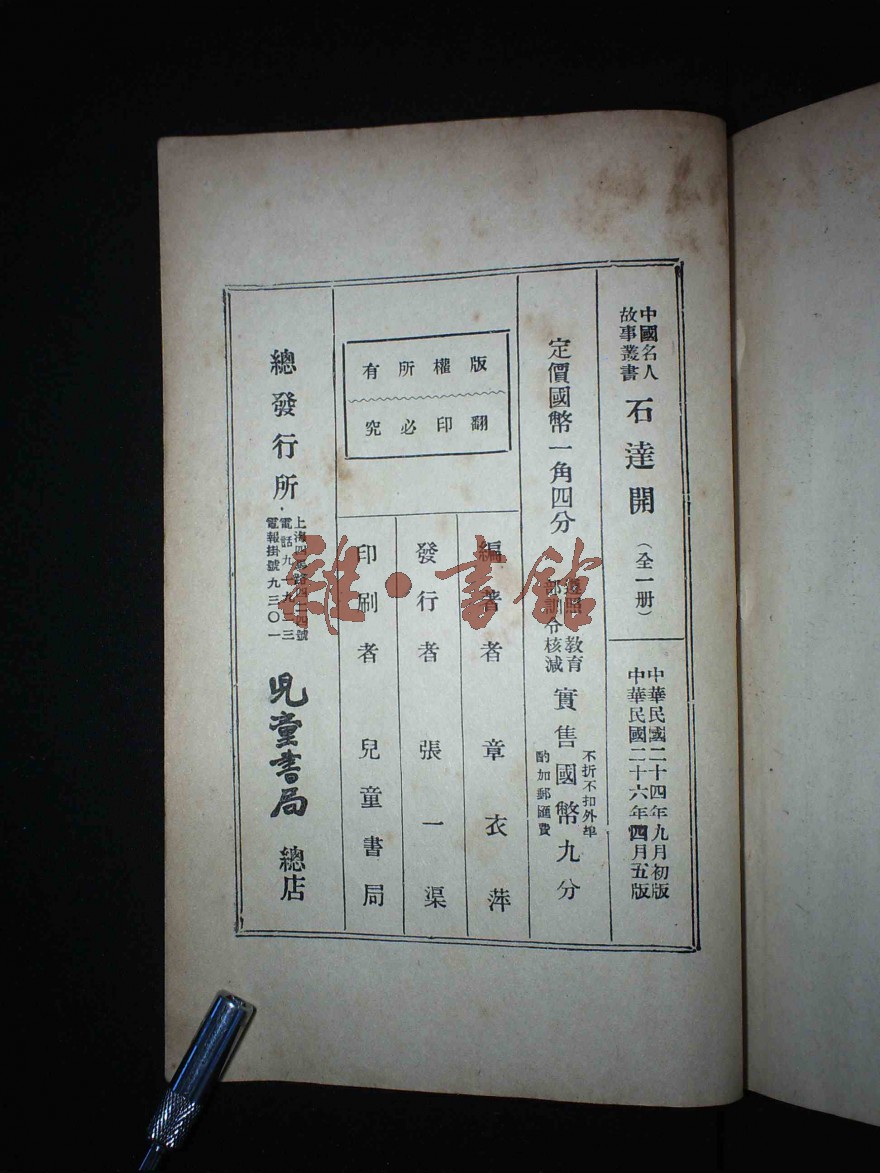 中國名人
故事叢書
石達開
(全一册)
中華民國二十四年九月初版
中華民國二十六年四月五版
定價國幣一角四分
遵照教育
部訓令核減
實售國幣九分
不折不扣外埠
酌加郵匯費
版權所有
翻印必究
編著者 章衣萍
發行者 張一渠
印刷者 兒童書局
總發行所
上海四馬路四二四號
電話九一九二三
電報掛號九三〇一
兒童書局
總店
雜·書館